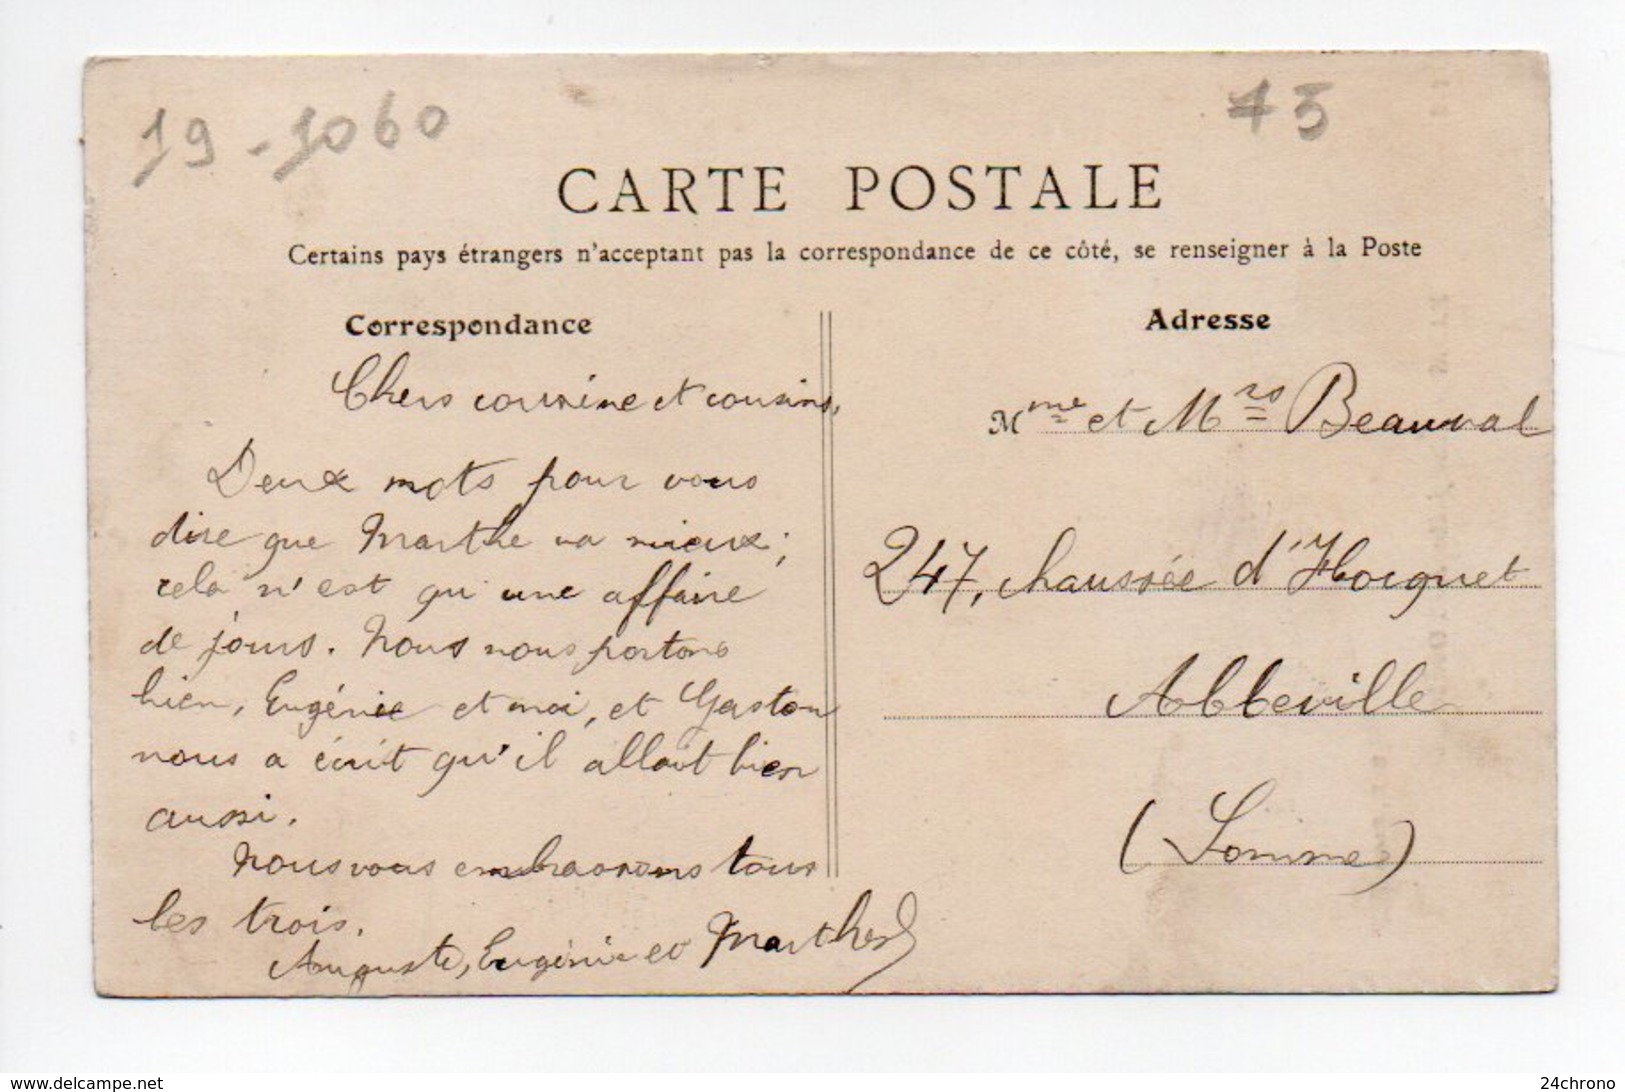 19-1060
75
CARTE POSTALE
Certains pays étrangers n'acceptant pas la correspondance de ce côté, se renseigner à la Poste
Correspondance
Chers cousine et cousins,
Deux mots pour vous
dire que Marthe va mieux ;
cela n'est qu'une affaire
de jours. Nous nous portons
bien, Eugénie et moi, et Gaston
nous a écrit qu'il allait bien
aussi.
Nous vous embrassons tous
les trois.
Auguste, Eugénie et Marthe
Adresse
Mme et Mrs Beauval
247, chaussée d'Hocquet
Abbeville
(Somme)
www.delcampe.net
24chrono